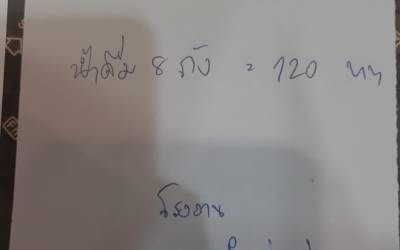 น้ำดื่ม 8 ถัง = 120 บาท
โรงงาน